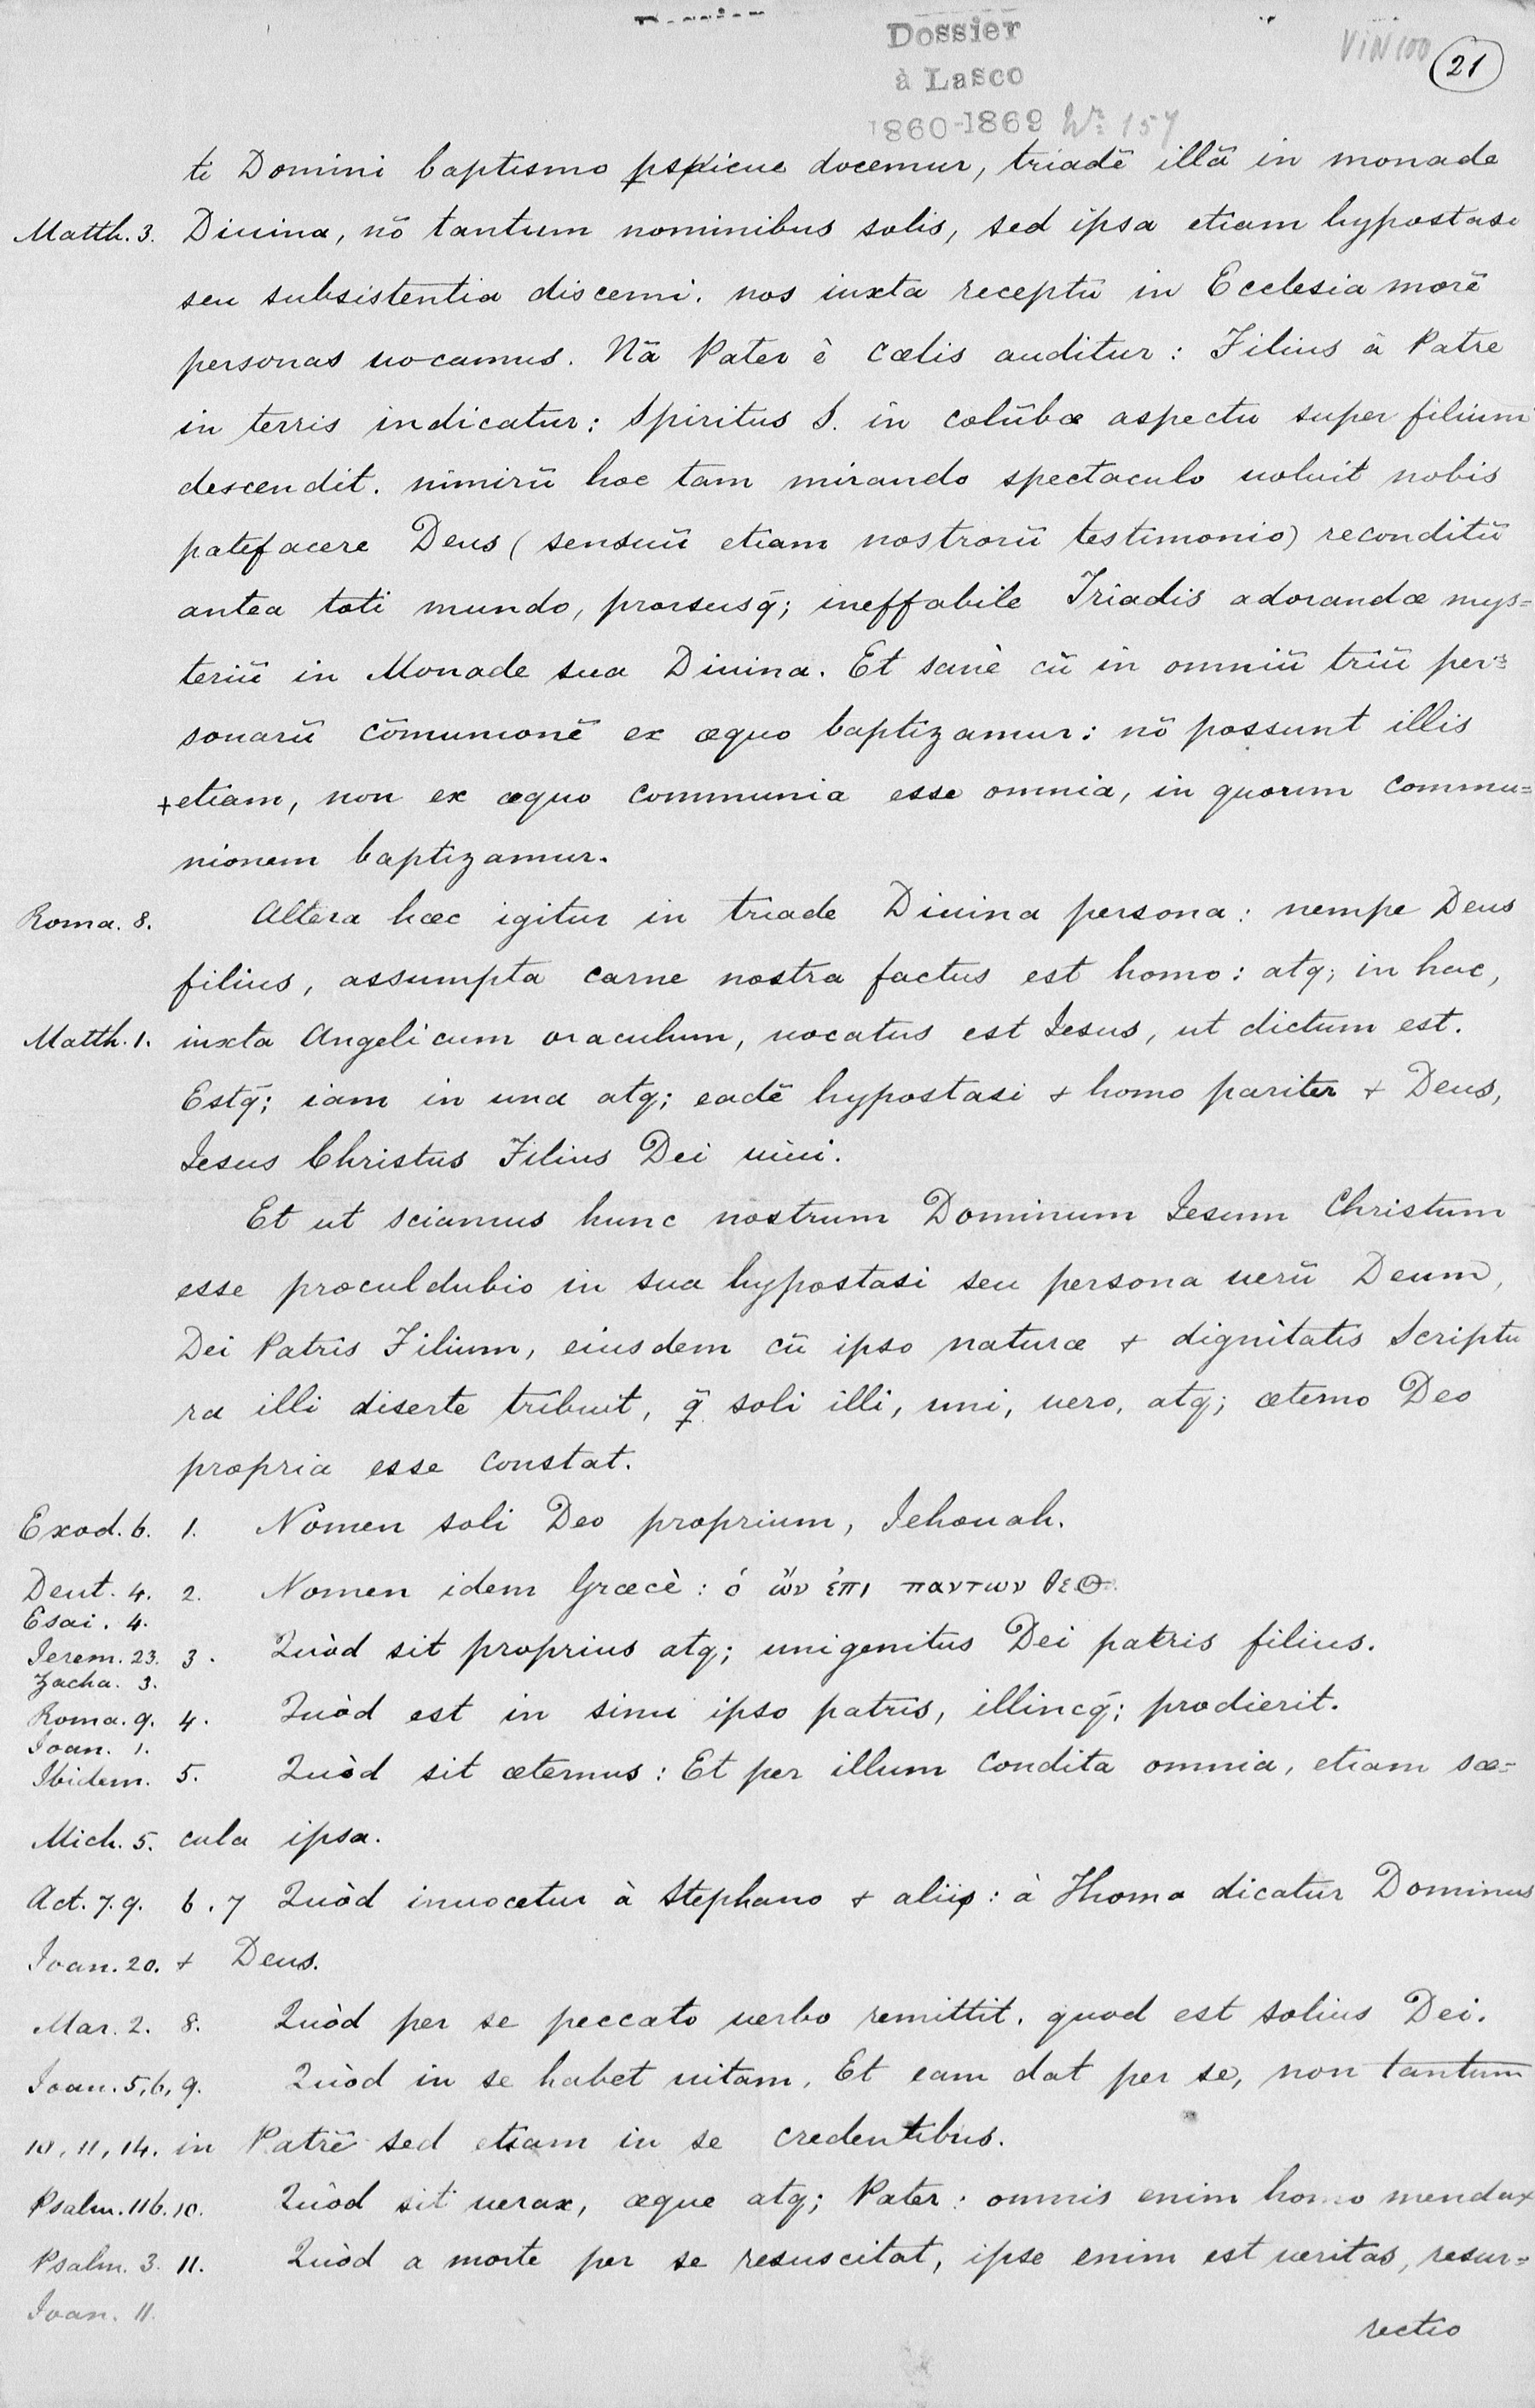 Dossier
à Lasco
1860-1869 No 157
VIN 100
21
te Domini baptismo pspicue docemur, triadē illā in monade
Matth. 3. Diuina, nō tantum nominibus solis, sed ipsa etiam hypostasi
seu subsistentia discerni. nos iuxta receptū in Ecclesia morē
personas uocamus. Nā Pater è cœlis auditur: Filius à Patre
in terris indicatur: Spiritus S. in colūbæ aspectu super filium
descendit. nimirū hoc tam mirando spectaculo uoluit nobis
patefacere Deus (sensuū etiam nostrorū testimonio) reconditū
antea toti mundo, prorsusq́; ineffabile Triadis adorandæ mys=
teriū in Monade sua Diuina. Et sanè cū in omniū triū per=
sonarū cōmunionē ex æquo baptizamur: nō possunt illis
+etiam, non ex æquo communia esse omnia, in quorum commu=
nionem baptizamur.
Roma. 8. Altera hæc igitur in triade Diuina persona: nempe Deus
filius, assumpta carne nostra factus est homo: atq; in hac,
Matth. 1. iuxta Angelicum oraculum, uocatus est Iesus, ut dictum est.
Estq́; iam in una atq; eadē hypostasi & homo pariter & Deus,
Iesus Christus Filius Dei uiui.
Et ut sciamus hunc nostrum Dominum Iesum Christum
esse proculdubio in sua hypostasi seu persona uerū Deum,
Dei Patris Filium, eiusdem cū ipso naturæ & dignitatis Scriptu
ra illi diserte tribuit, q̄ soli illi, uni, uero, atq; æterno Deo
propria esse constat.
Exod. 6. 1. Nomen soli Deo proprium, Iehouah.
Deut. 4. 2. Nomen idem Græcè: ὁ ὤν ἐπι παντων θεΘ.
Esai. 4.
Ierem. 23. 3. Quòd sit proprius atq; unigenitus Dei patris filius.
Zacha. 3.
Roma. 9. 4. Quòd est in sinu ipso patris, illincq́; prodierit.
Ioan. 1.
Ibidem. 5. Quòd sit æternus: Et per illum condita omnia, etiam sæ=
Mich. 5. cula ipsa.
Act. 7. 9. 6. 7 Quòd inuocetur à Stephano & aliis: à Thoma dicatur Dominus
Ioan. 20. & Deus.
Mar. 2. 8. Quòd per se peccato uerbo remittit. quod est solius Dei.
Ioan. 5, 6, 9. Quòd in se habet uitam. Et eam dat per se, non tantum
10, 11, 14. in Patrē sed etiam in se credentibus.
Psalm. 116. 10. Quòd sit uerax, æque atq; Pater: omnis enim homo mendax
Psalm. 3. 11. Quòd a morte per se resuscitat, ipse enim est ueritas, resur=
Ioan. 11.
rectio